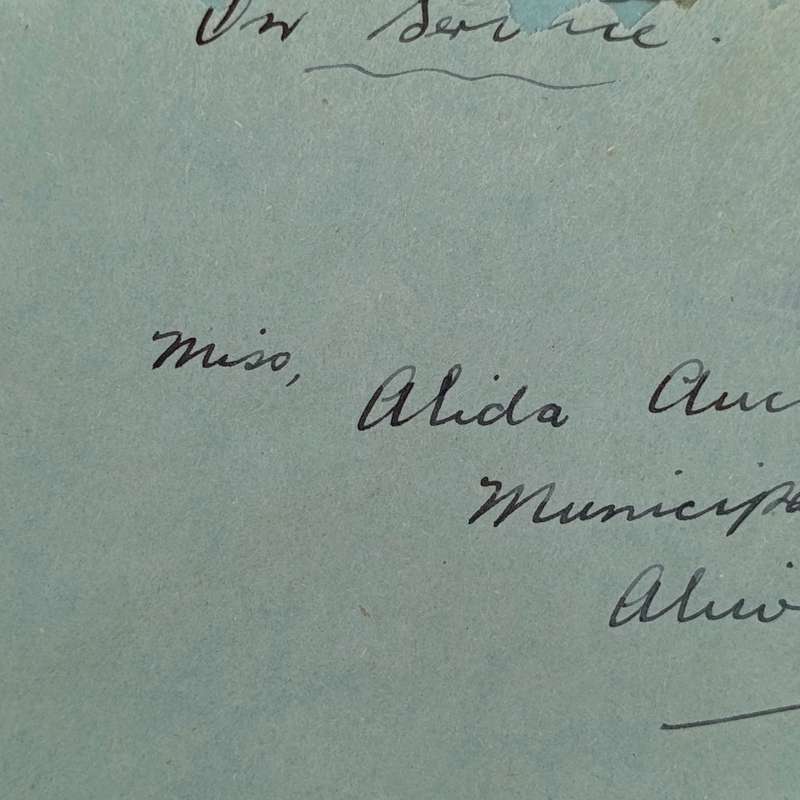 On Service.
Miss,
Alida Auc
Municipa
Aliw